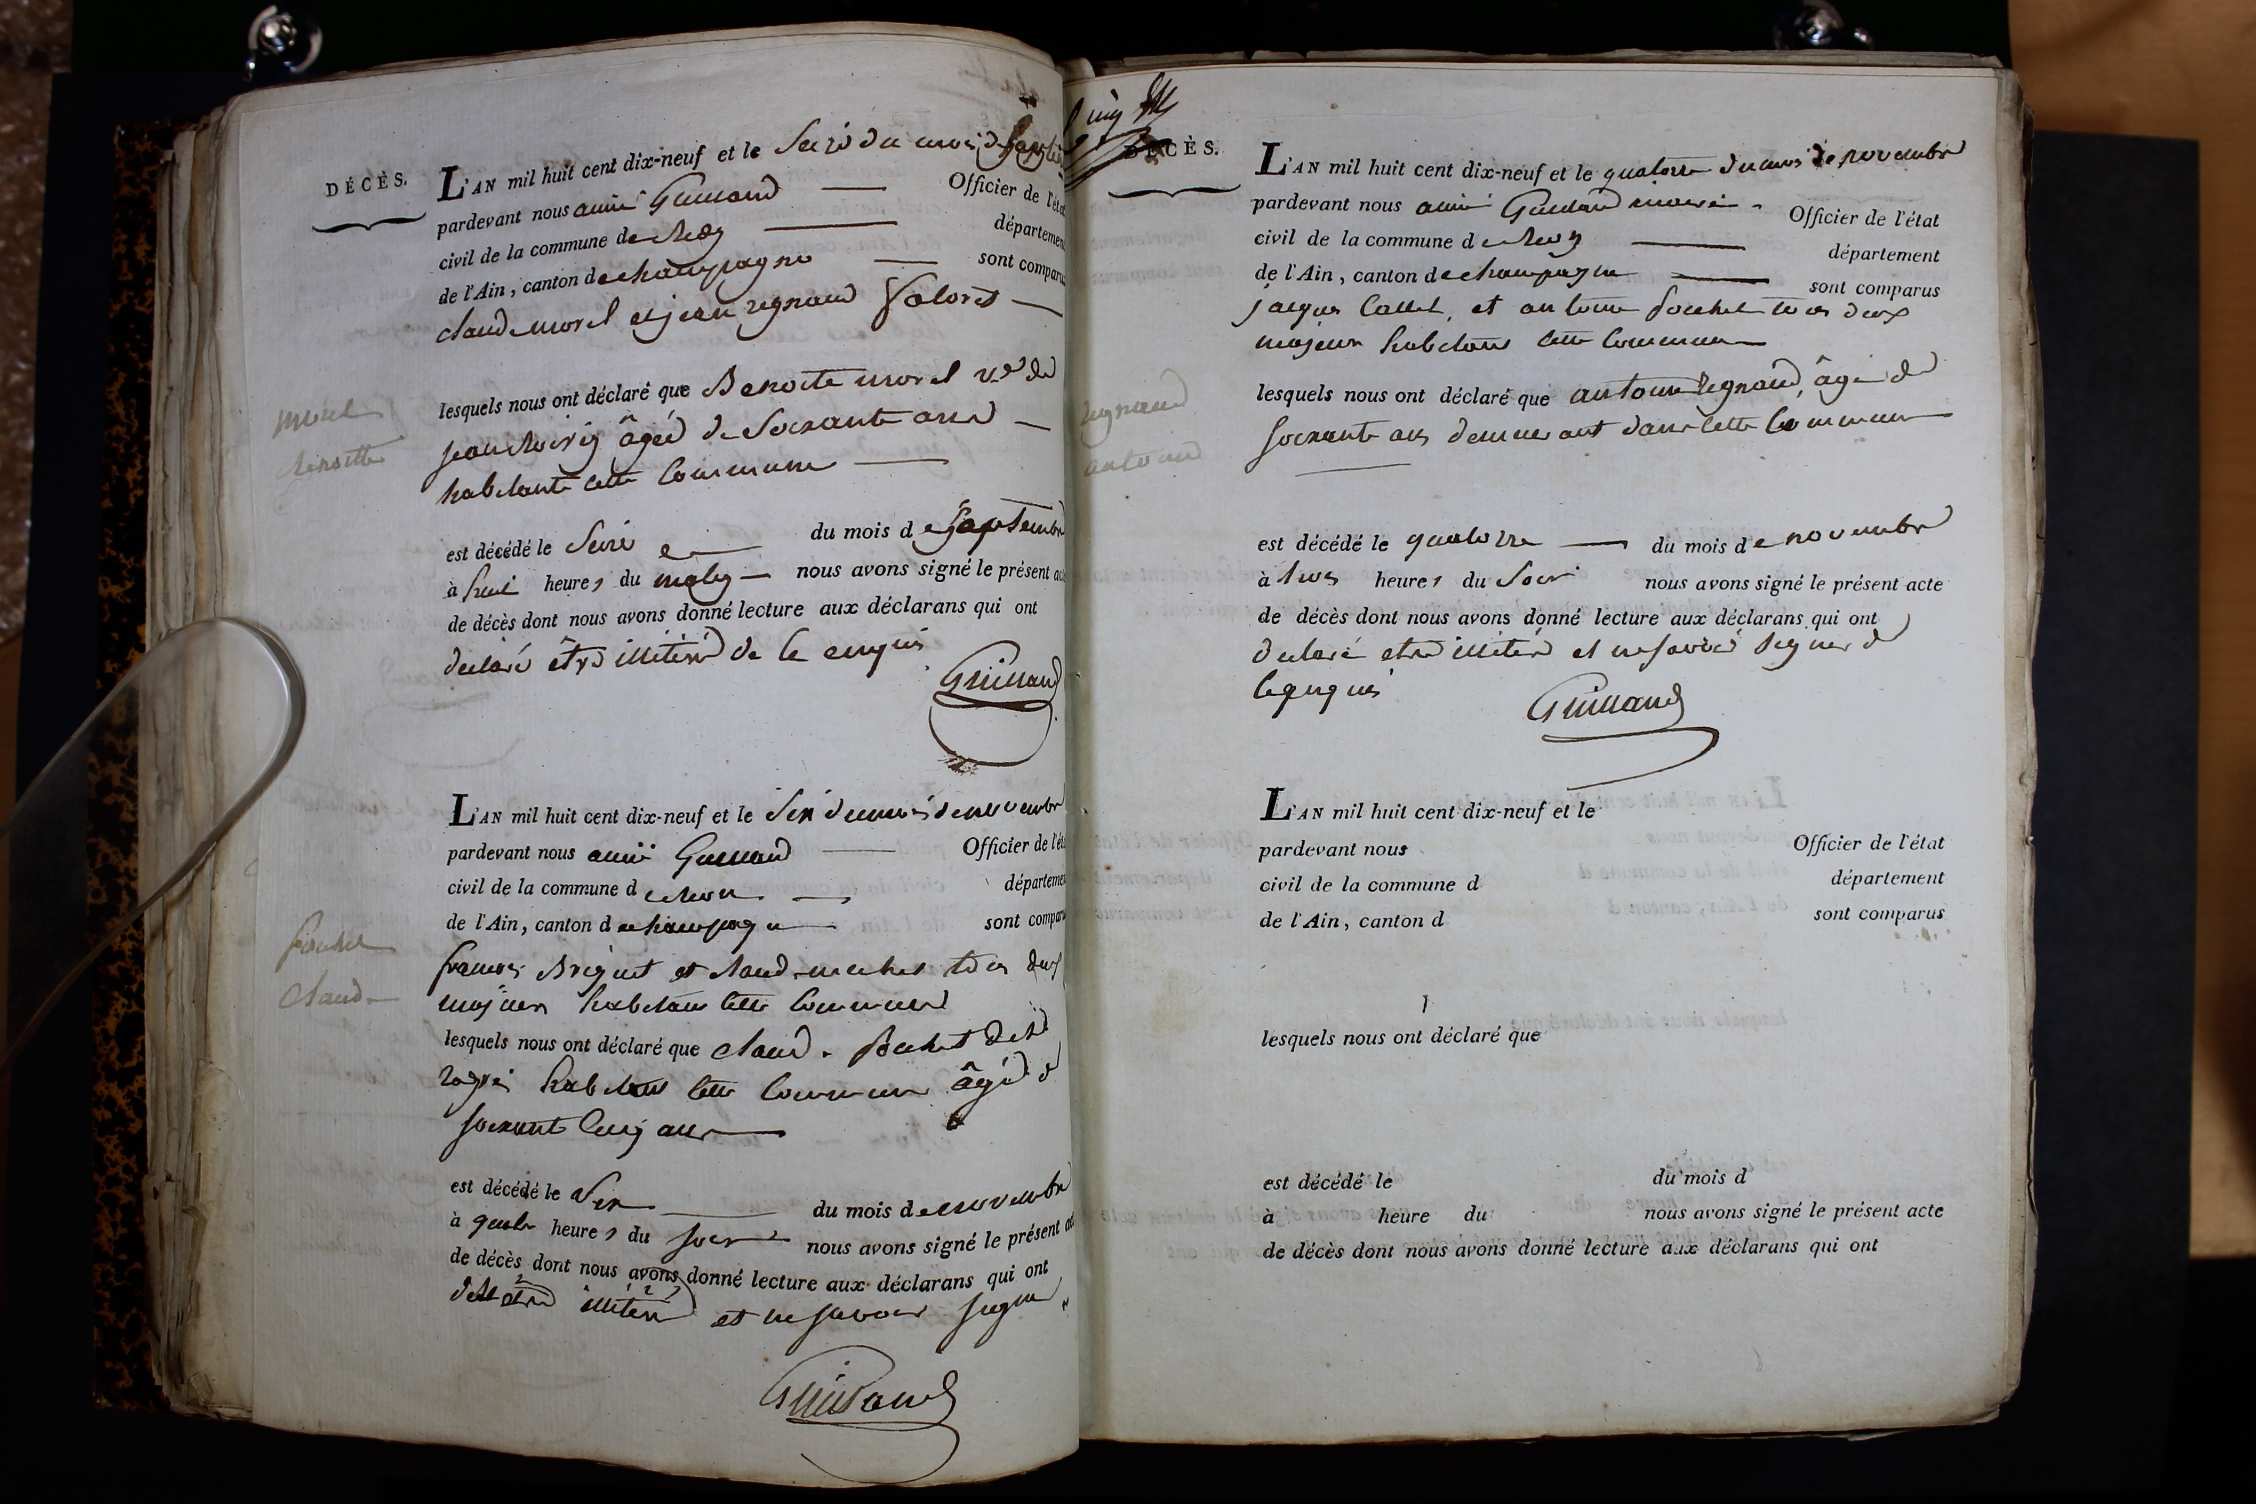 DÉCÈS.
L'AN mil huit cent dix-neuf et le seize du mois de septembre
pardevant nous aimé Guilland Officier de l'état
civil de la commune de département
de l'Ain, canton de champagne sont comparus
claude morel et jean regnaud
lesquels nous ont déclaré que Benoite morel vve de
jean âgée de soixante ans
habitante cette commune
morel
benoitte
est décédé le seize du mois de septembre
à huit heures du matin nous avons signé le présent acte
de décès dont nous avons donné lecture aux déclarans qui ont
declaré être illiteré de ce enquis
Guilland
L'AN mil huit cent dix-neuf et le six du mois de novembre
pardevant nous aimé Guilland Officier de l'état
civil de la commune de département
de l'Ain, canton de champagne sont comparus
françois Briquet et claude tous deux
majeur habitans cette commune
lesquels nous ont déclaré que claude pochet dit
habitant cette commune âgé de
soixante cinq ans
pochet
claude
est décédé le six du mois de novembre
à quatre heures du soir nous avons signé le présent acte
de décès dont nous avons donné lecture aux déclarans qui ont
être illiteré et ne savoir signer
Guilland
DÉCÈS.
L'AN mil huit cent dix-neuf et le quatorze du mois de novembre
pardevant nous aimé Guilland maire Officier de l'état
civil de la commune de département
de l'Ain, canton de champagne sont comparus
jacques et antoine pochet tous deux
majeur habitans cette commune
lesquels nous ont déclaré que antoine regnaud, âgé de
soixante ans demeurant dans cette commune
regnaud
antoine
est décédé le quatorze du mois de novembre
à trois heures du soir nous avons signé le présent acte
de décès dont nous avons donné lecture aux déclarans qui ont
declaré etre illiteré et ne savoir signer de
ce enquis
Guilland
L'AN mil huit cent dix-neuf et le
pardevant nous Officier de l'état
civil de la commune d département
de l'Ain, canton d sont comparus
lesquels nous ont déclaré que
est décédé le du mois d
à heure du nous avons signé le présent acte
de décès dont nous avons donné lecture aux déclarans qui ont